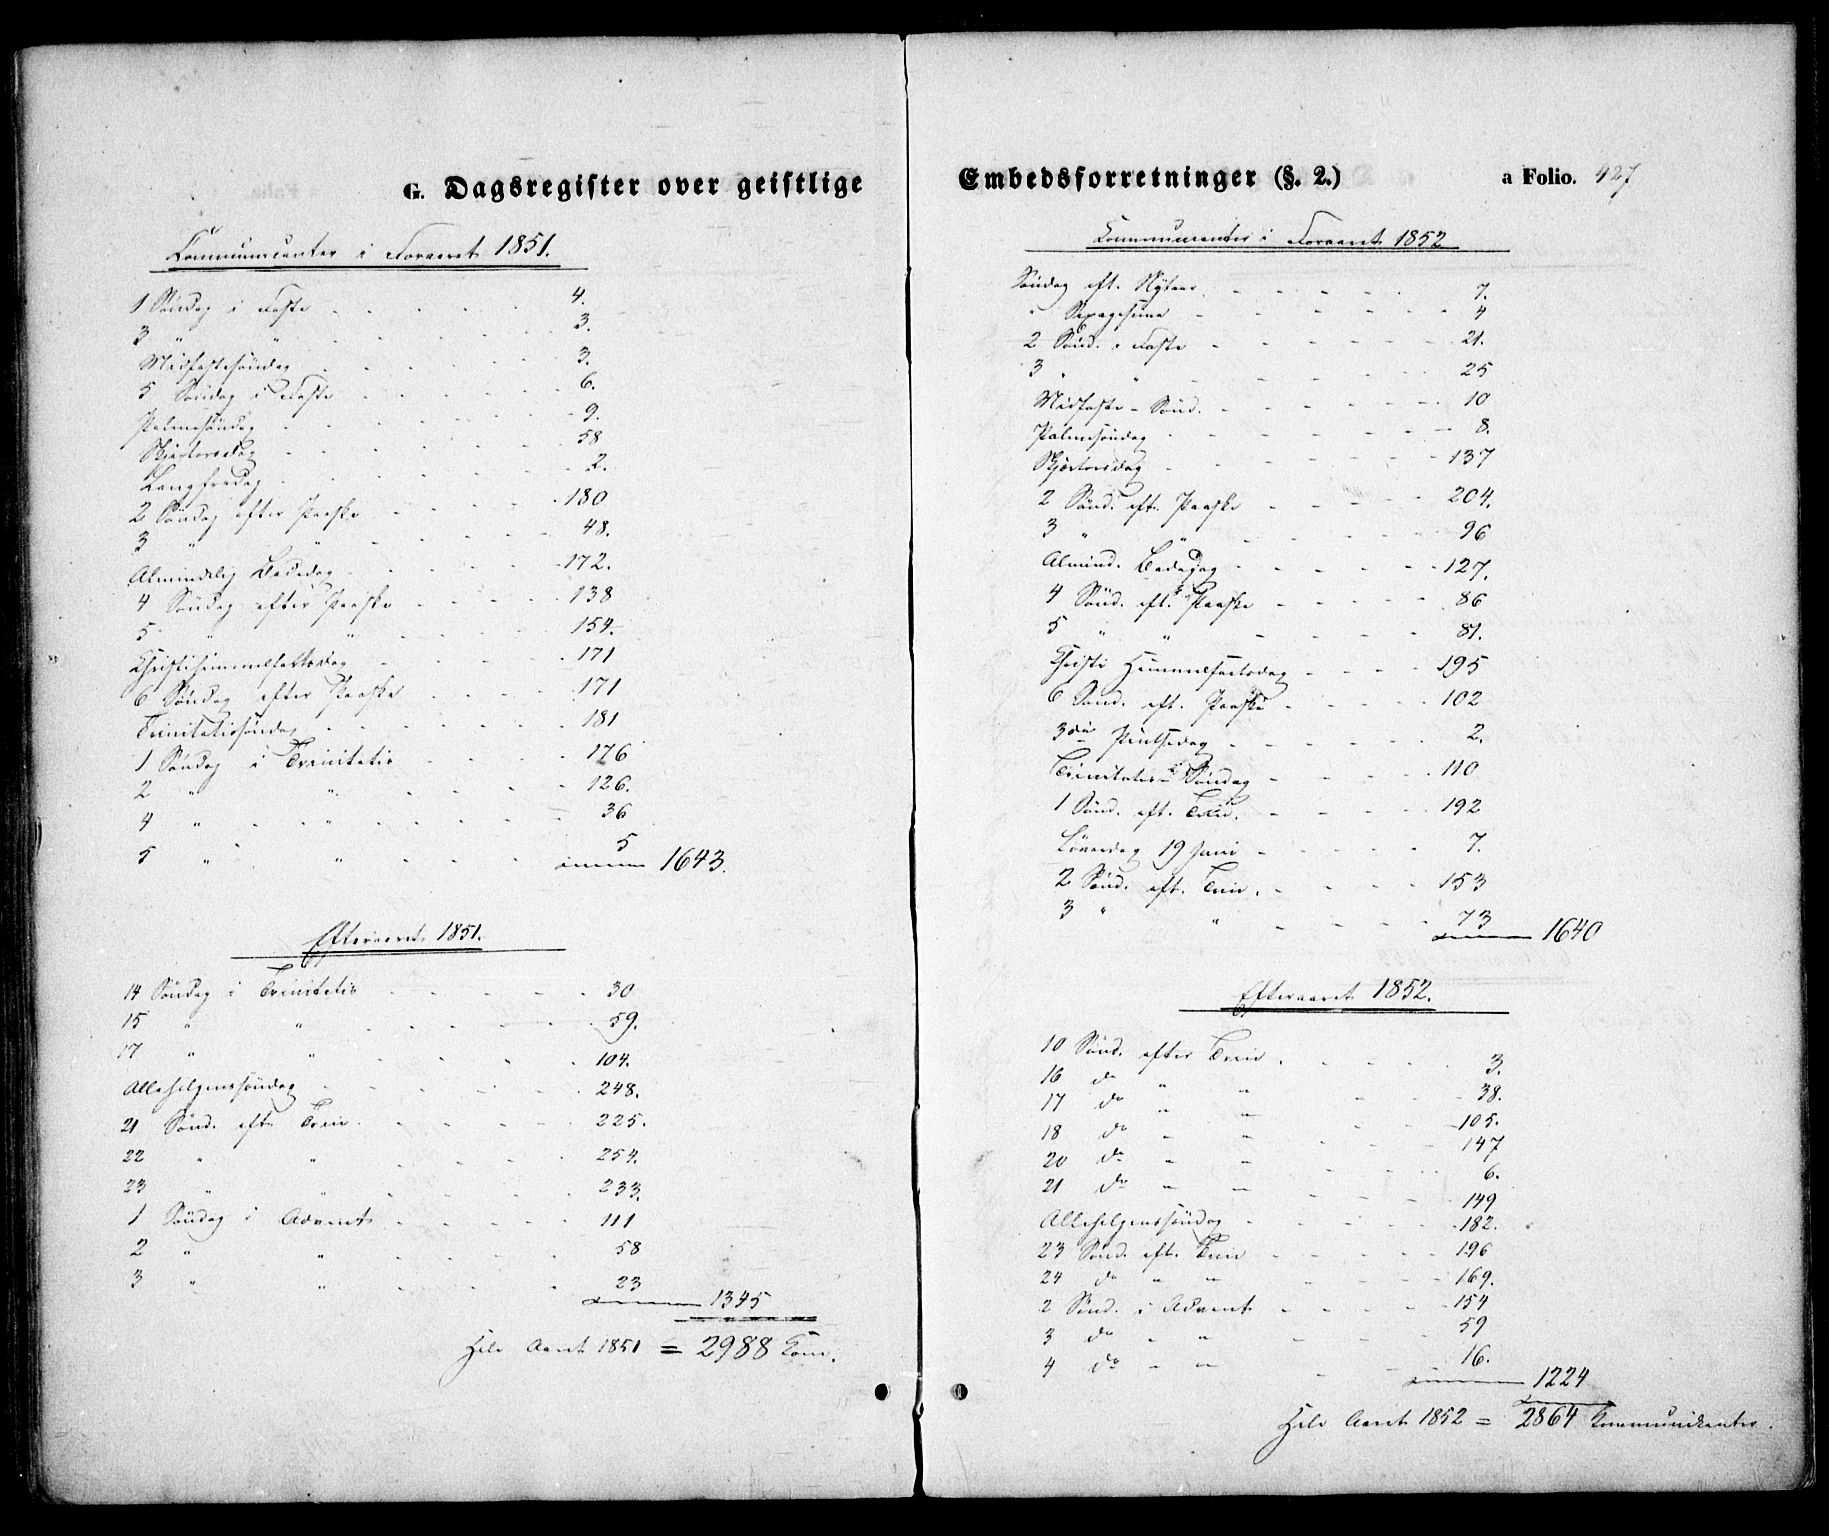 G. Dagsregister over geistlige
Communicanter i Foraaret 1851.
1 Søndag i Faste - - - - - 4.
3 " " 3.
Midfastesøndag - - - - - 3.
5 Søndag i Faste - - - - - 6.
Palmesøndag - - - - - 9.
Skjærtorsdag - - - - - 58
Langfredag - - - - - 2.
2 Søndag efter Paaske - - - - 180
3 " " - - - - 48.
Almindelig Bededag - - - - 172.
4 Søndag efter Paaske - - - 138
5 " " - - - - 154.
Christihimmelfartsdag - - - - 171
6 Søndag efter Paaske - - - 171
Trinitatissøndag - - - - - 181
1 Søndag i Trinitatis - - - 176
2 " " - - - - 126.
4 " " - - - - 36
5 " " - - - 5
1643.
Efteraaret 1851.
14 Søndag i Trinitatis - - - - 30
15 " " - - - - 59.
17 " " - - - - 104.
Allehelgenssøndag - - - - 248.
21 Sønd. eft. Trin. - - - - 225.
22 " " - - - - 254.
23 " " - - - - 233.
1 Søndag i Advent - - - - 111
2 " " - - - - 58
3 " " - - - - 23
1345
Hele Aaret 1851 = 2988 Com.
Embedsforretninger (§. 2.) a Folio. 427
Kommunicanter i Foraaret 1852
Søndag eft. Nytaar - - - - - 7.
" Sexagesima - - - - - 4
2 Sønd. i Faste - - - - - 21.
3 " " - - - - - 25
Midfaste-Sønd. - - - - - 10
Palmesøndag - - - - - 8.
Skjærtorsdag - - - - - 137
2 Sønd. eft. Paaske - - - - 204.
3 " " - - - - 96
Almind. Bededag - - - - - 127.
4 Sønd. eft. Paaske - - - - 86
5 " " - - - - 81.
Christi Himmelfartsdag - - - 195
6 Sønd. eft. Paaske - - - - 102
3die Pintsedag - - - - - 2.
Trinitatis-Søndag - - - - 110
1 Sønd. eft. Trin. - - - - 192
Løverdag 19 Juni - - - - 7.
2 Sønd. eft. Trin. - - - - 153
3 " " - - - - 73
1640
Efteraaret 1852.
10 Sønd. efter Trin. - - - - 3.
16 do " " - - - 38.
17 do " " - - - 105.
18 do " " - - - 147
20 do " " - - - 6.
21 do " " - - - 149
Allehelgenssøndag - - - - 182.
23 Sønd. eft. Trin - - - - 196
24 do " " - - - - 169.
2 Sønd. i Advent - - - - 154
3 do " " - - - - 59
4 do " " - - - 16.
1224
Hele Aaret 1852 = 2864 Kommunikanter.